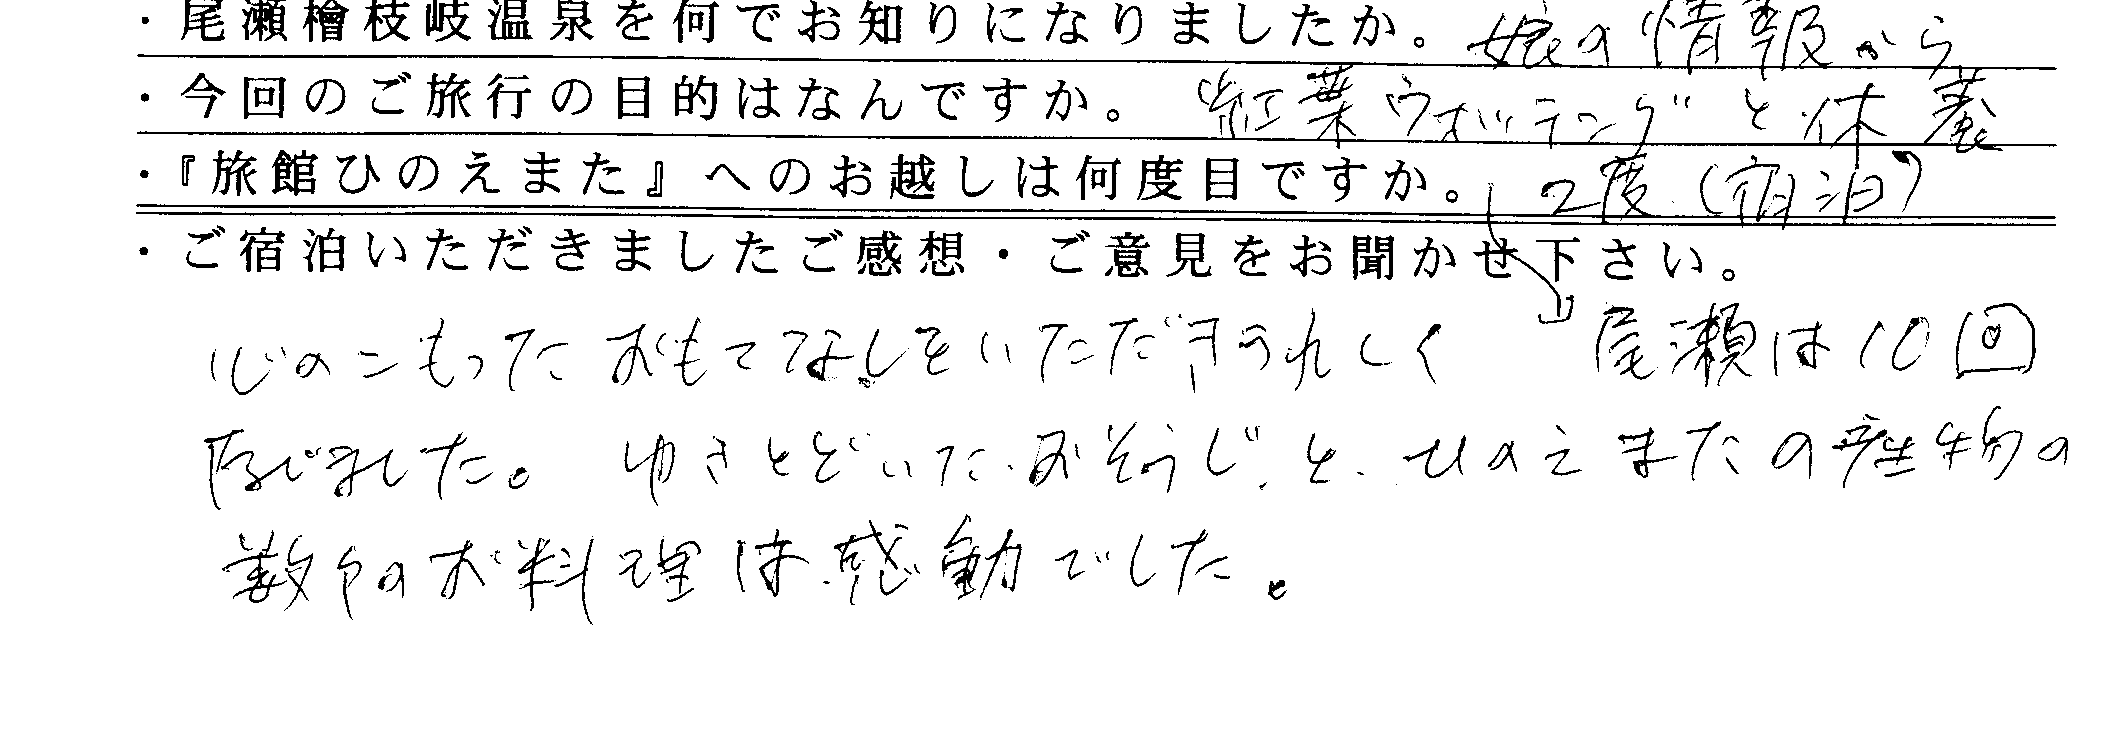 ・尾瀬檜枝岐温泉を何でお知りになりましたか。娘の情報から
・今回のご旅行の目的はなんですか。紅葉ウオッチングと休養
・『旅館ひのえまた』へのお越しは何度目ですか。2度(宿泊)
・ご宿泊いただきましたご感想・ご意見をお聞かせ下さい。
心のこもったおもてなしをいただきうれしく
尾瀬は10回
存じました。ゆきとどいたおそうじと、ひのえまたの産物の
数々のお料理は感動でした。